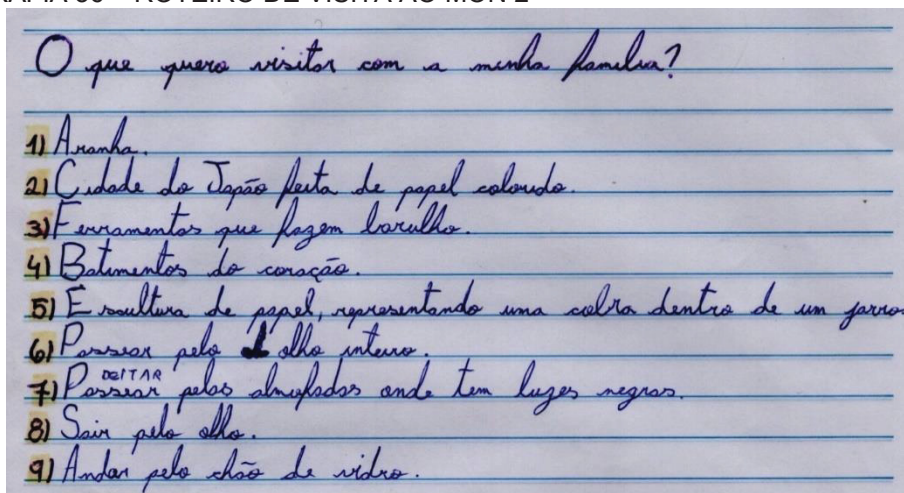 O que quero visitar com a minha família?
1) Aranha.
2) Cidade do Japão feita de papel colorido.
3) Ferramentas que fazem barulho.
4) Batimentos do coração.
5) Escultura de papel, representando uma cobra dentro de um jarro.
6) Passear pelo olho inteiro.
DEITAR
7) Passear pelas almofadas onde tem luzes negras.
8) Sair pelo olho.
9) Andar pelo chão de vidro.